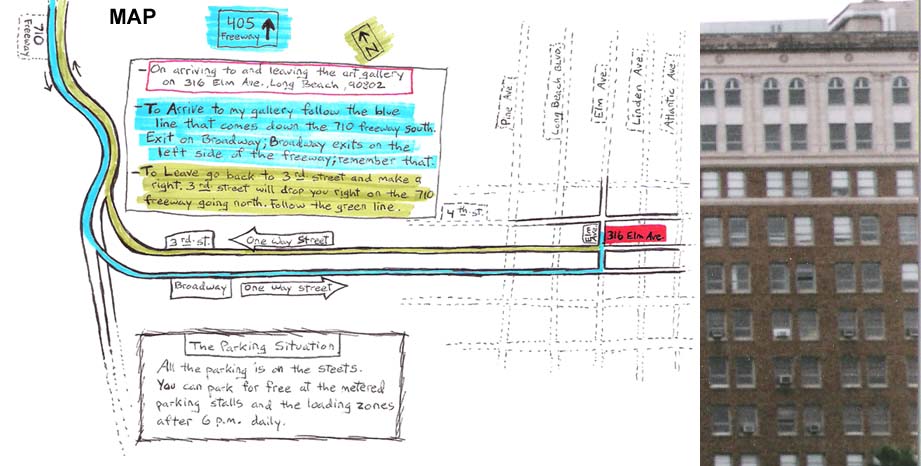 MAP
710
Freeway
405
Freeway
N
- On arriving to and leaving the art gallery
on 316 Elm Ave., Long Beach, 90802
- To Arrive to my gallery follow the blue
line that comes down the 710 freeway south.
Exit on Broadway; Broadway exits on the
left side of the freeway; remember that.
- To Leave go back to 3rd street and make a
right. 3rd street will drop you right on the 710
freeway going north. Follow the green line.
Pine Ave.
Long Beach BLVD.
Elm Ave.
Linden Ave.
Atlantic Ave.
4th st.
3rd st.
One way Street
Elm Ave.
316 Elm Ave.
Broadway
One way street
The Parking Situation
All the parking is on the steets.
You can park for free at the metered
parking stalls and the loading zones
after 6 p.m. daily.